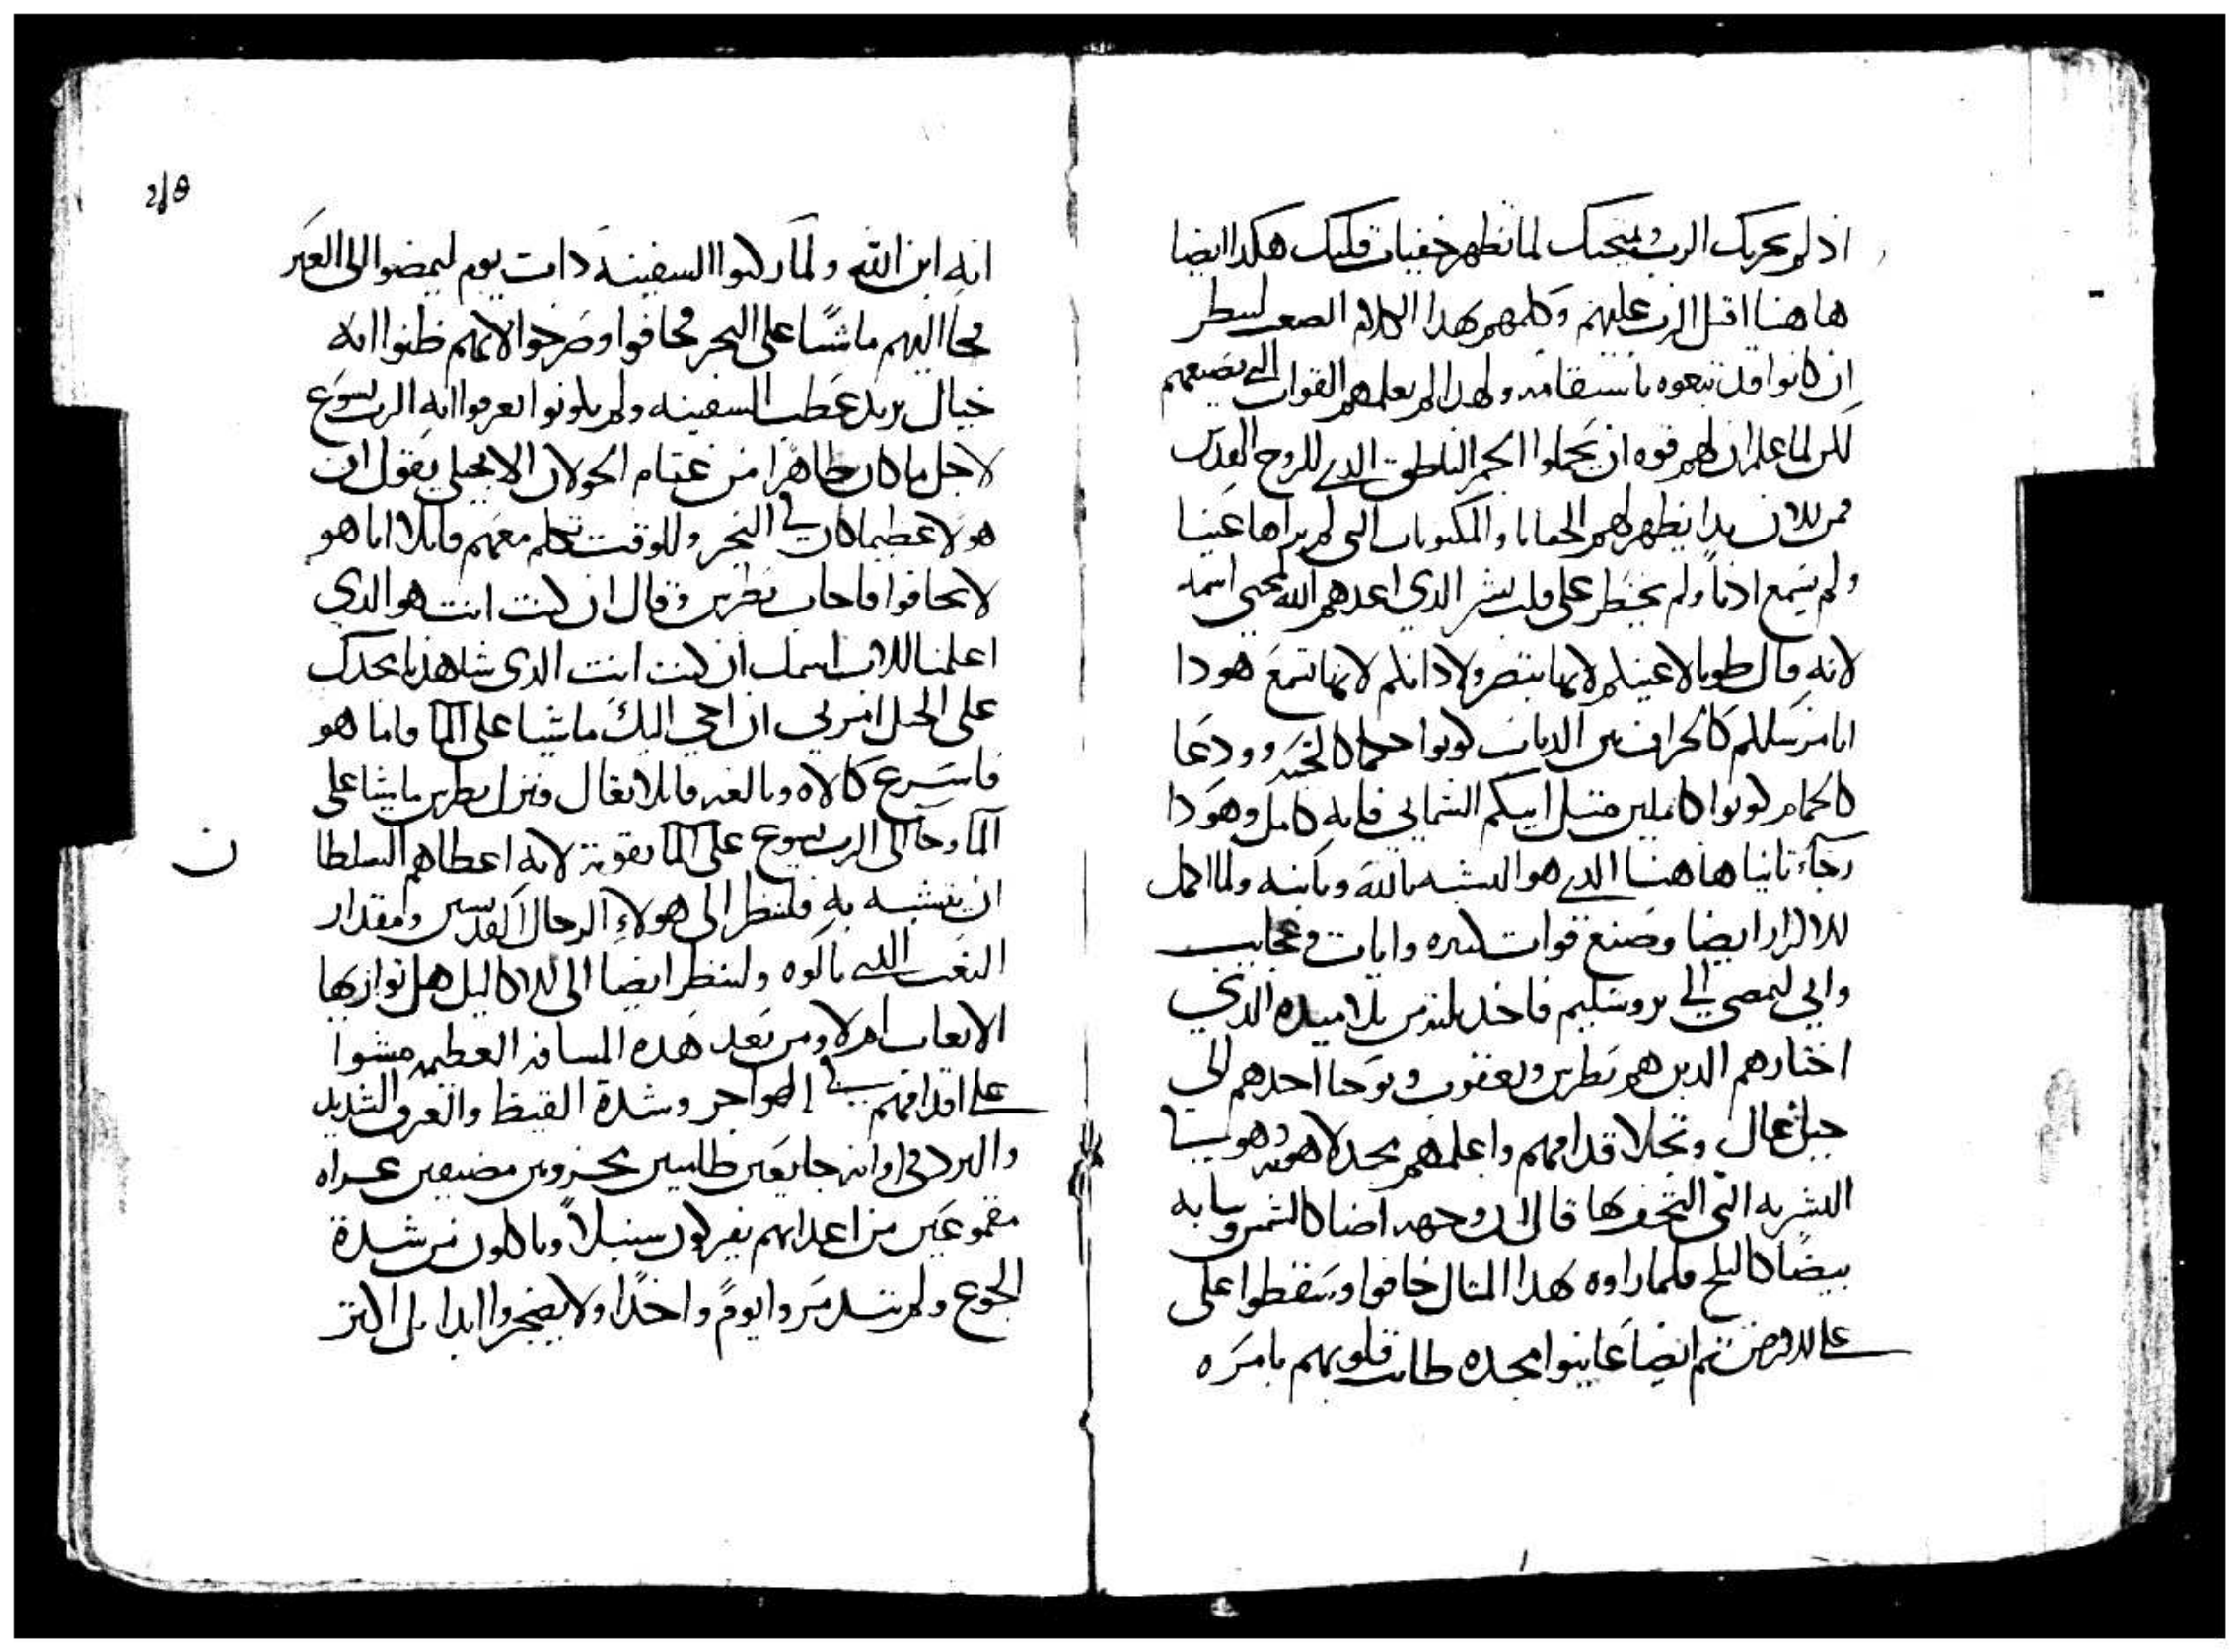 اذ لم يجربك الرب ويمتحنك لما تظهر خفيات قلبك هكدا ايضا
هاهنا اقبل الرب عليهم وكلمهم بهدا الكلام الصعب لينظر
ان كانوا قد تبعوه باستقامه ولهدا لم يعلمهم القوات التي يصنعهم
لكن لما علم ان لهم قوه ان يحملوا الحجر الناطق الدي للروح القدس
فمن الان بدا يظهر لهم الخفايا والمكنونات التي لم يراها عينا
ولم تسمع اذنا ولم يخطر على قلب بشر الدي اعدهم الله لمحبي اسمه
لانه قال طوبا لاعينكم لانها تبصر ولاذانكم لانها تسمع هودا
انا مرسلكم كالخراف بين الدياب كونوا حكما كالحيه وودعا
كالحمام كونوا كاملين متل ابيكم السماىي فانه كامل وهودا
رجاء تانيا هاهنا الدي هو التشبه بالله وبابنه ولما اكمل
للابرار ايضا وصنع قوات كتيره وايات وعجايب
واتى ليمضي الى يروشليم فاخد تلته من تلاميده الذي
اختارهم الدين هم بطرس ويعقوب ويوحنا احدهم الى
جبل عال وتجلا قدامهم واعلمهم بمجد لاهوته وهو
البشريه التي التحف بها قال ان وجهه اضا كالشمس وتيابه
بيضا كالتلج فلما راوه بهدا المتال خافوا وسقطوا على
على الارض تم ايضا عاينوا مجده طابت قلوبهم بامره
218
انه ابن الله ولما ركبوا السفينه دات يوم ليمضوا الى العبر
فجا اليهم ماشيا على البحر فخافوا وصرخوا لانهم ظنوا انه
خيال يريد عطب السفينه ولم يكونوا يعرفوا انه الرب يسوع
لاجل ما كان ظاهرا من الحولان الانجيلي يقول ان
هولا عظيما كان في البحر وللوقت تكلم معهم قايلا انا هو
لا تخافوا فاجاب بطرس وقال ان كنت انت هو الدي
اعلمنا الان اسمك ان كنت انت الدي شاهدنا مجدك
على الجبل امرني ان اجي اليك ماشيا على الما فانا هو
فاسرع كالاه قايلا تعال فنزل بطرس ماشيا على
الما وجا الى الرب يسوع على الما بقوته لانه اعطاهم السلطا
ن
ان يتشبه به فلننظر الى هولاء الرجال القديسين ومقدار
التعب الدي نالوه ولننظر ايضا الى الاكاليل هل توازيها
الاتعاب ام لا ومن بعد هده المسافه العظيمه مشوا
على اقدامهم في الهواجر وشدة القيظ والعرق الشديد
والبرد في اوانه جايعين محزونين مضيقين عراه
مقموعين من اعدايهم يفركون سنبلا وياكلون من شدة
الجوع ولم يوما واحدا ولا يضجروا ابدا بل اكتر